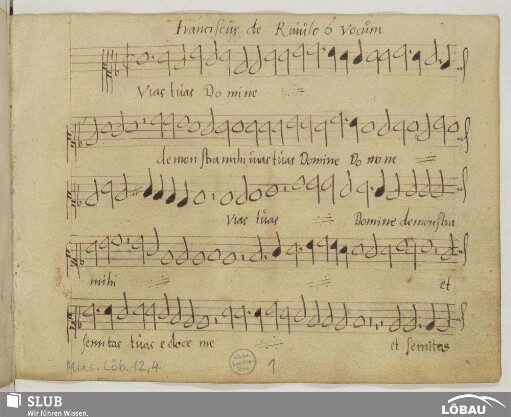 Franciscus de Rivulo 6 Vocum
Vias tuas Domine
demonstra mihi vias tuas Domine Domine
Vias tuas Domine demonstra
mihi et
semitas tuas edoce me et semitas
Mus. Löb. 12,4
1
SLUB
Wir führen Wissen.
LÖBAU